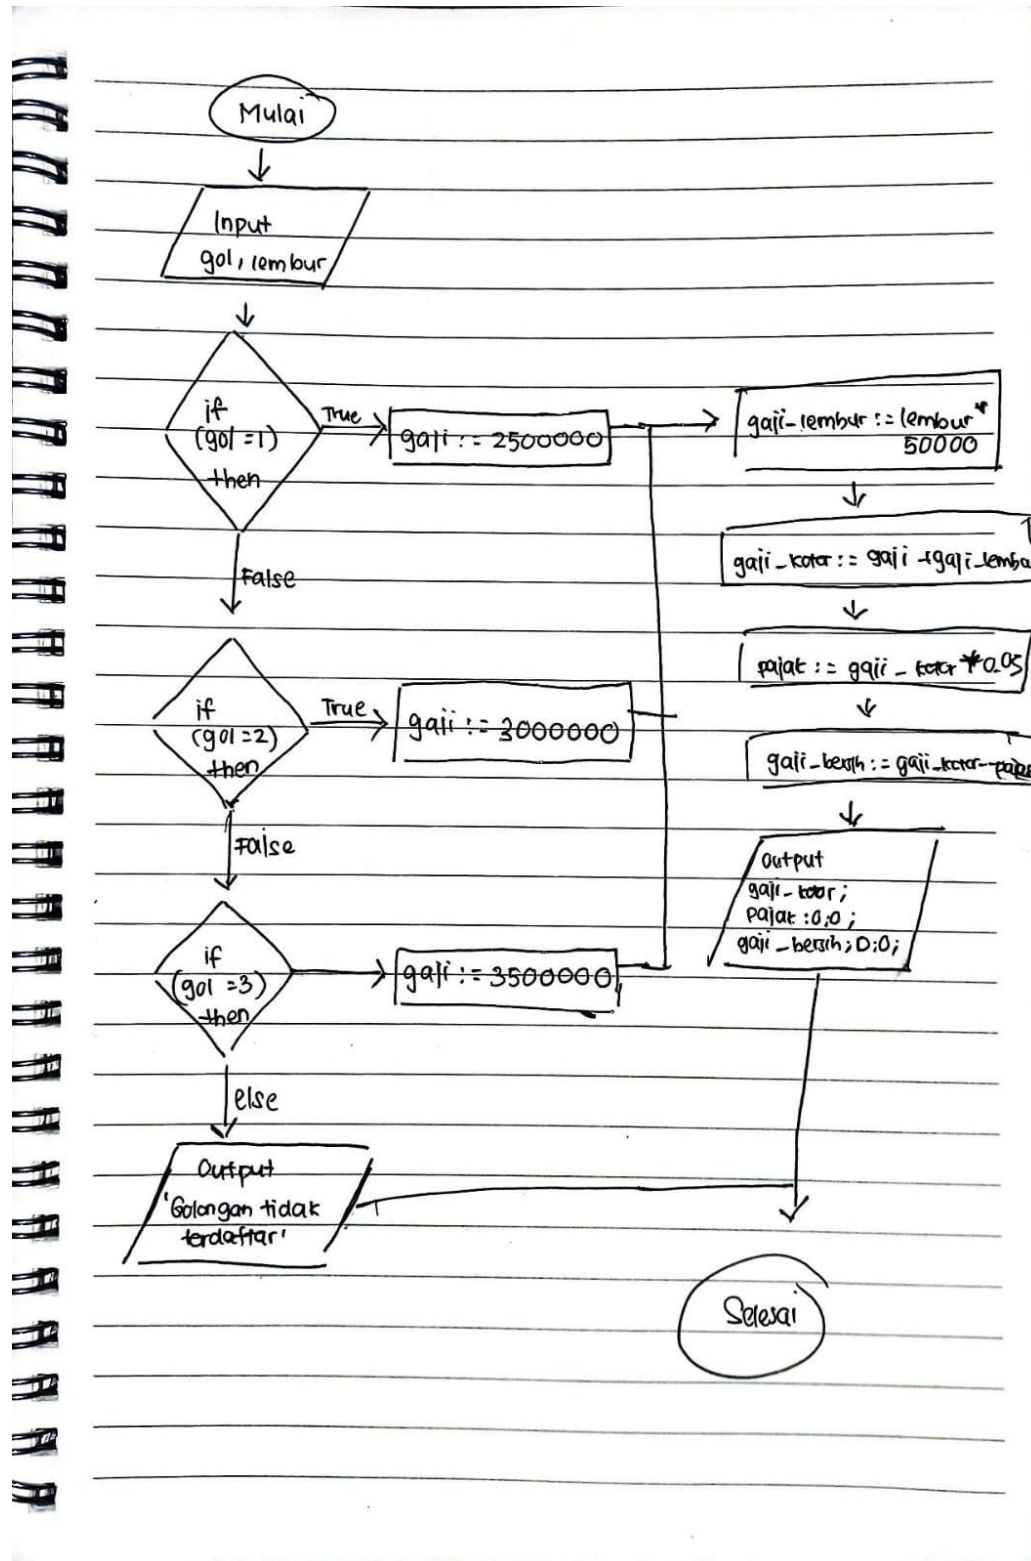 Mulai
Input
gol, lembur
if
(gol =1)
then
True
gaji := 2500000
False
if
(gol =2)
then
True
gaji := 3000000
False
if
(gol =3)
then
gaji := 3500000
else
Output
'Golongan tidak
terdaftar'
gaji_lembur := lembur *
50000
gaji_kotor := gaji + gaji_lembu
pajak := gaji_kotor * 0.05
gaji_bersih := gaji_kotor - paja
Output
gaji_kotor;
pajak :0;0;
gaji_bersih; 0:0;
Selesai